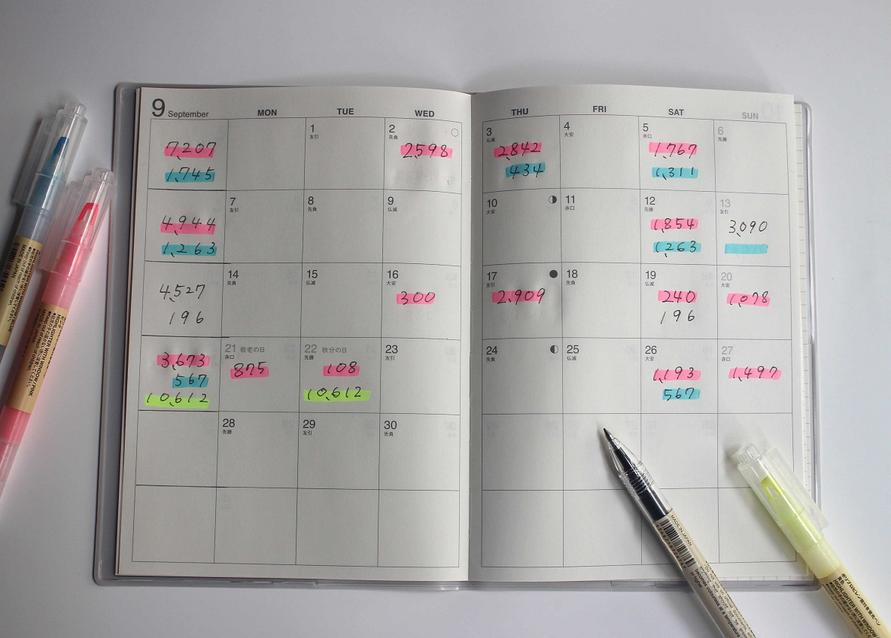 9 September MON TUE WED THU FRI SAT SUN
7,207
1,745
1
友引
2
先負
2,598
3
仏滅
2,842
434
4
大安
5
赤口
1,767
1,311
6
先勝
4,944
1,263
7
友引
8
先負
9
仏滅
10
大安
11
赤口
12
先勝
1,854
1,263
13
友引
3,090
4,527
196
14
先負
15
仏滅
16
大安
300
17
友引
2,909
18
先負
19
仏滅
240
196
20
大安
1,078
3,673
567
10,612
21 敬老の日
赤口
875
22 秋分の日
先勝
108
10,612
23
友引
24
先負
25
仏滅
26
大安
1,193
567
27
赤口
1,497
28
先勝
29
友引
30
先負